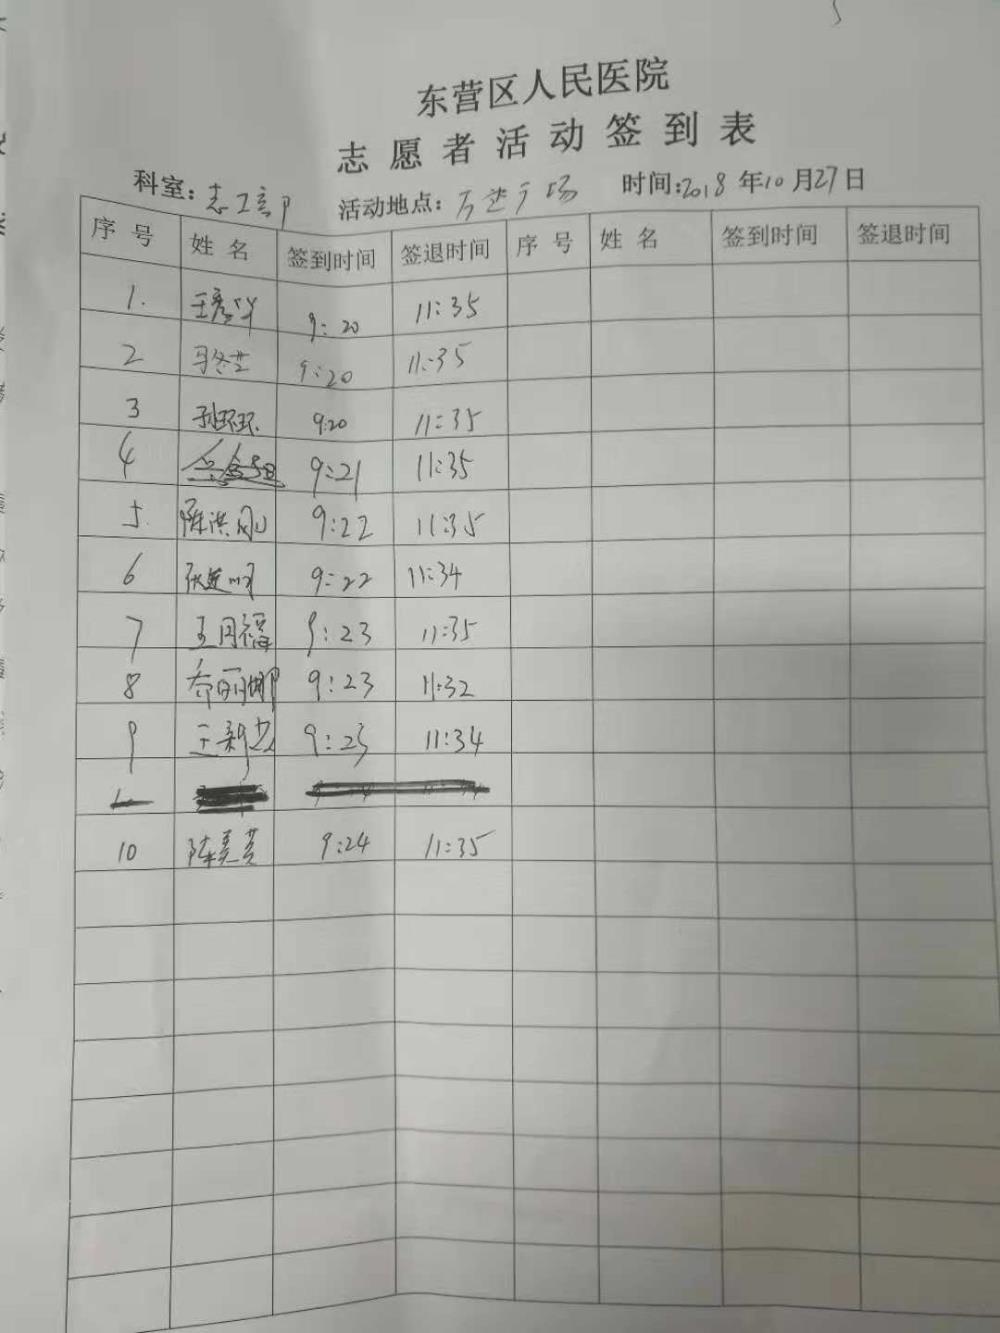 东营区人民医院
志愿者活动签到表
科室:志工部 活动地点:万达广场 时间:2018年10月27日
序号 姓名 签到时间 签退时间 序号 姓名 签到时间 签退时间
1. 王彦华 9:20 11:35
2 马冬芝 9:20 11:35
3 孙环环 9:20 11:35
4 9:21 11:35
5. 陈洪刚 9:22 11:35
6 张建明 9:22 11:34
7 王月福 9:23 11:35
8 乔丽娜 9:23 11:32
9 王新 9:23 11:34
10 陈美芸 9:24 11:35